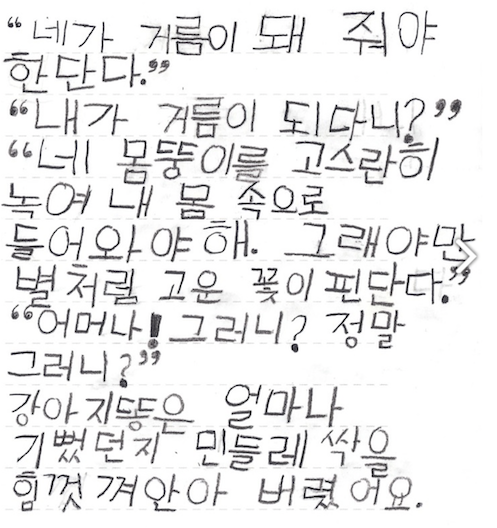 “네가 거름이 돼 줘야
한단다.”
“내가 거름이 되다니?”
“네 몸뚱이를 고스란히
녹여 내 몸 속으로
들어와야 해. 그래야만
별처럼 고운 꽃이 핀단다.”
“어머나! 그러니? 정말
그러니?”
강아지똥은 얼마나
기뻤던지 민들레 싹을
힘껏 껴안아 버렸어요.